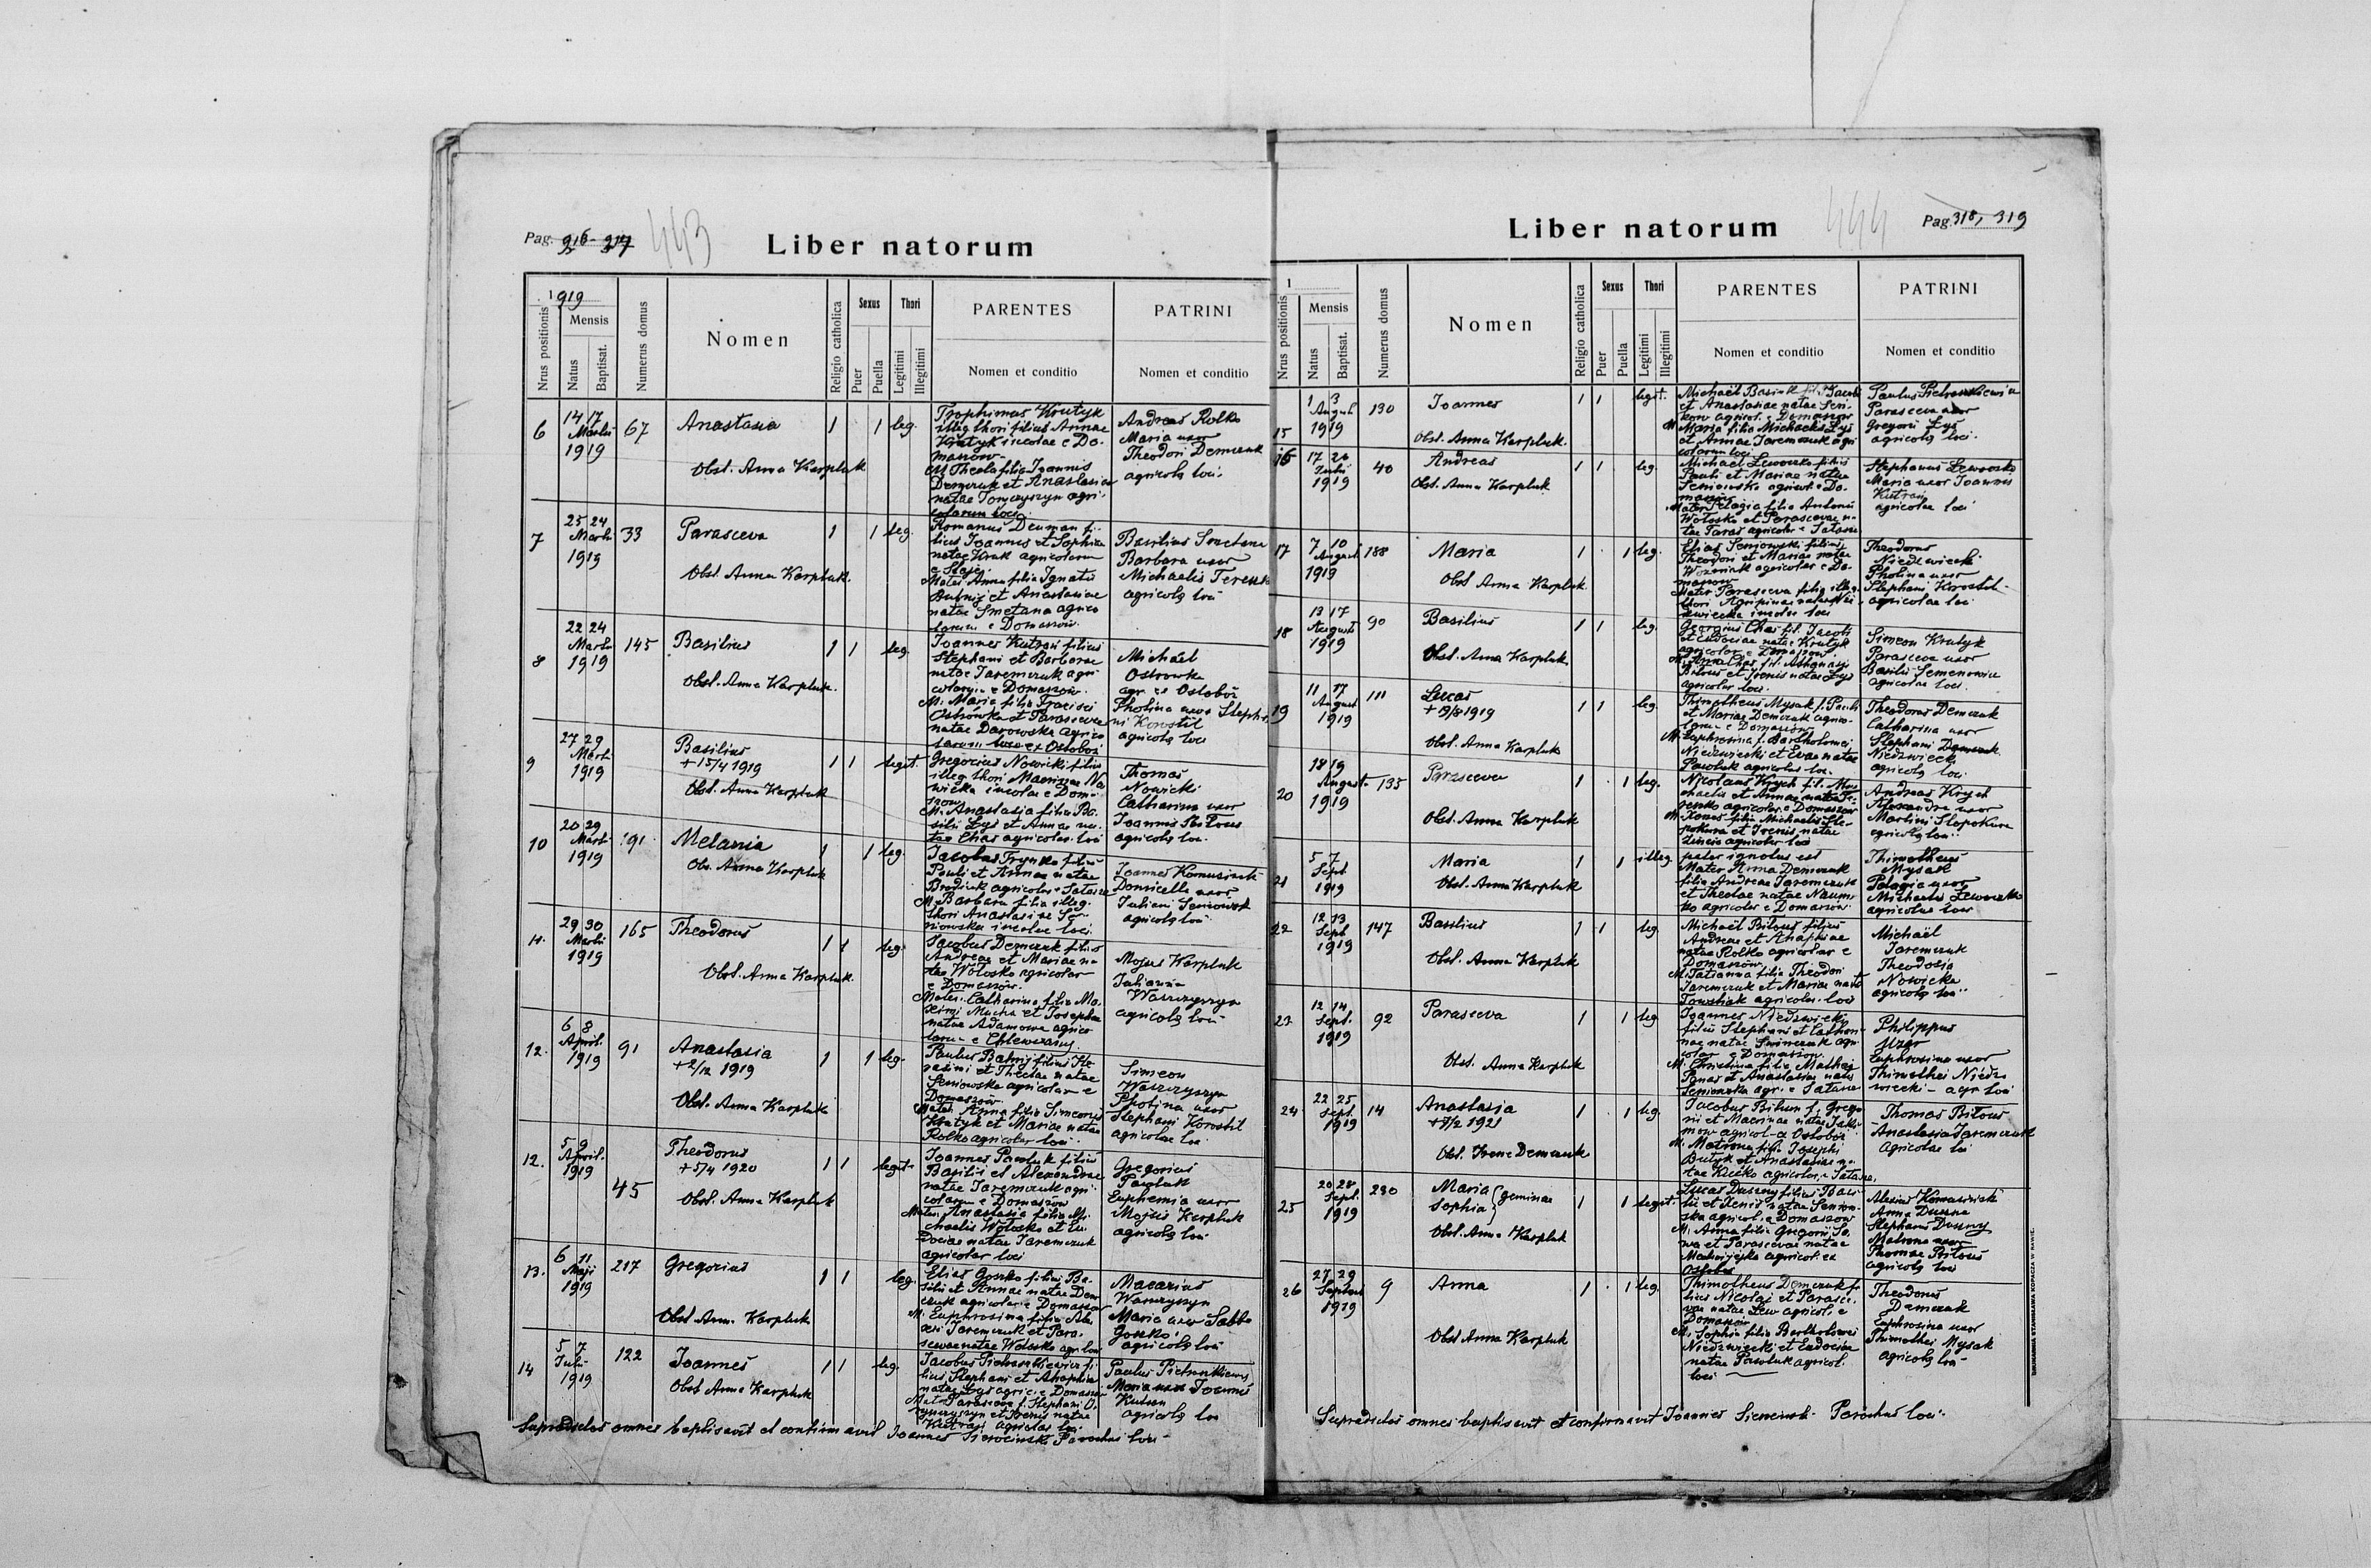 Pag. 216-217
443
Liber natorum
1919
Nrus positionis
Mensis
Natus
Baptisat.
Numerus domus
Nomen
Religio catholica
Sexus
Puer
Puella
Thori
Legitimi
Illegitimi
PARENTES
Nomen et conditio
PATRINI
Nomen et conditio
6
14 17
Martii
1919
67
Anastasia
Obst. Anna Karpluk
1
1
leg.
Trophimus Krutyk
illeg. thori filius Annae
Krutyk incolae e Do-
maszów
M. Thecla filia Joannis
Demczuk et Anastasiae
natae Tomczyszyn agri-
colarum loci.
Andreas Rolko
Maria uxor
Theodori Demczuk
agricolę loci.
7
25 24
Martii
1919
33
Parasceva
Obst. Anna Karpluk.
1
1
leg.
Romanus Deuman fi-
lius Joannis et Sophiae
natae Kruk agricolarum
e Staje.
Mater Anna filia Ignatii
et Anastasiae
natae Smetana agrico
larum e Domaszów.
Basilius Smetana
Barbara uxor
Michaelis
agricolę loci
8
22 24
Martii
1919
145
Basilius
Obst. Anna Karpluk.
1
1
leg.
Joannes Kutrań filius
Stephani et Barbarae
natae Jaremczuk agri
colarum e Domaszów.
M. Maria filia
Ostrówka et Parascevae
natae Darowska agrico
larum ex Ostobóż
Michaël
Ostrowka
agr. ex Ostobóż
Photina uxor Stepha-
ni Korostil
agricolę loci
9
27 29
Martii
1919
Basilius
+ 15/4 1919
Obst. Anna Karpluk
1
1
legit.
Gregorius Nowicki filius
illeg. thori Macrinae No
wicka incolae e Doma
szów
M. Anastasia filia Ba-
silii Łyś et Annae na-
tae Chas agricolar. loci
Thomas
Nowicki
Catharina uxor
Joannis Bitous
agricolę loci
10
20 29
Martii
1919
191
Melania
Obs. Anna Karpluk
1
1
leg.
Jacobus Frynko filius
Pauli et Annae natae
agricolar. e Tatarze
M. Barbara filia illeg.
thori Anastasiae Se-
niowska incolae loci.
Joannes Komusinski
Domicella uxor
Juliani Seniowski
agricolę loci
11.
29 30
Martii
1919
165
Theodorus
Obst. Anna Karpluk.
1
1
leg.
Jacobus Demczuk filius
Andreae et Mariae na-
tae Wołosko agricolar
e Domaszów.
Mater Catharina filia Ma-
ximi Mucha et Josephae
natae Adamowa agrico
larum e Chlewczany.
Moyses Karpluk
Julianna
Waszczyszyn
agricolę loci
12.
6 8
April.
1919
91
Anastasia
+ 2/12 1919
Obst. Anna Karpluk
1
1
leg.
Paulus Batnij filius
et Theclae natae
Seniowska agricolar e
Domaszów.
Mater Anna filia Simeonis
Krutyk et Mariae natae
Rolko agricolar loci
Simeon
Waszczyszyn
Photina uxor
Stephani Korostil
agricolae loci
12.
5 9
April.
1919
45
Theodorus
+ 5/4 1920
Obst. Anna Karpluk
1
1
legit.
Joannes Pawluk filius
Basilii et Alexandrae
natae Jaremczuk agri
colarum e Domaszów
Mater Anastasia filia Mi-
chaelis Wołosko et Eu-
dociae natae Jaremczuk
agricolar loci
Gregorius
Pawluk
Euphemia uxor
Moysis Karpluk
agricolę loci
13.
6 11
Maji
1919
217
Gregorius
Obst. Anna Karpluk
1
1
leg.
Elias Goszko filius Ba-
silii et Annae natae Dem
czuk agricolar. e Domaszów
M. Euphrosina filia Ale-
xii Jaremczuk et Para-
scevae natae Wołosko agr. loci
Macarius
Waszczyszyn
Maria uxor
Goszko
agricolę loci
14
5 7
Julii
1919
122
Joannes
Obst. Anna Karpluk
1
1
leg.
Jacobus Pietraszkiewicz fi-
lius Stephani et Ahaphiae
natae Łyś agric. e Domaszów
Mater Parasceva f. Stephani
et Irenis natae
Kutrań agricolar loci
Paulus Pietraszkiewicz
Maria uxor Joannis
Kutran
agricolę loci
Supradictos omnes baptisavit et confirmavit Joannes Sierociński Parochus loci
Liber natorum
444
Pag. 318, 319
1
Nrus positionis
Mensis
Natus
Baptisat.
Numerus domus
Nomen
Religio catholica
Sexus
Puer
Puella
Thori
Legitimi
Illegitimi
PARENTES
Nomen et conditio
PATRINI
Nomen et conditio
15
1 3
August
1919
130
Joannes
Obst. Anna Karpluk.
1
1
legit.
Michaël fil. Jacobi
et Anastasiae natae Sen-
kow agricol. e Domaszów
M. Maria filia Michaelis Łyś
et Annae Jaremczuk agri
colarum loci
Paulus Pietraszkiewicz
Parasceva uxor
Gregorii Łyś
agricolę loci.
16
17 20
Julii
1919
40
Andreas
Obst. Anna Karpluk
1
1
leg.
Michaël Leworko filius
Pauli et Mariae natae
Seniowska agricol. e Do-
maszów
Mater Pelagia filia Antonii
Wołosko et Parascevae na-
tae Taras agricolar e Tatarze
Stephanus Leworko
Maria uxor Joannis
Kutrań
agricolae loci
17
7 10
August
1919
188
Maria
Obst Anna Karpluk.
1
1
leg.
Elias Seniowski filius
Theodori et Mariae natae
Wozniak agricolar e Do-
maszów
Mater Parasceva filia illeg.
thori Agripinae natae Nie
dzwiecka incolae loci
Theodorus
Niedzwiecki
Photina uxor
Stephani Korostil
agricolae loci
18
13 17
Augusti
1919
90
Basilius
Obst. Anna Karpluk.
1
1
leg.
Georgius Chas fil. Jacobi
et Eudociae natae Krutyk
agricolar. e Domaszów.
M. Anna Chas, fil. Athanasii
Bitous et Irenis natae Łyś
agricolar loci.
Simeon Krutyk
Parasceva uxor
Basilii Semenowicz
agricolae loci.
19
11 17
August
1919
111
Lucas
+ 19/8 1919
Obst. Anna Karpluk
1
1
leg.
Thimotheus Mysak f. Pauli
et Mariae Demczuk agrico-
larum e Domaszów
M. Euphrosina f. Bartholomei
Niedzwiecki et Evae natae
Pawluk agricolar loci.
Theodorus Demczuk
Catharina uxor
Stephani Demczuk
Niedzwiecki
agricolę loci
20
18 19
August.
1919
135
Parasceva
Obst. Anna Karpluk
1
1
leg.
Nicolaus Krych fil. Mi-
chaelis et Annae natae
agricolar. e Domaszów
M. Xenia filia Michaelis Sle-
pokura et Irenis natae
agricolar loci
Andreas Krych
Alexandra uxor
Martini Slopokura
agricolę loci
21
5 7
Sept
1919
Maria
Obst. Anna Karpluk
1
1
illeg.
pater ignotus est
Mater Anna Demczuk
filia Andreae Jaremczuk
et Theclae natae Naum-
ko agricolar e Domaszów.
Thimotheus
Mysak
Pelagia uxor
Michaelis Leworko
agricolae loci
22
12 13
Sept
1919
147
Basilius
Obst. Anna Karpluk
1
1
leg.
Michaël Bitous filius
Andreae et Ahaphiae
natae Rolko agricolar e
Domaszów.
M. Tatianna filia Theodori
Jaremczuk et Mariae natae
agricolar. loci
Michaël
Jaremczuk
Theodosia
Nowicka
agricolę loci
23
12 14
Sept.
1919
92
Parasceva
Obst. Anna Karpluk
1
1
leg
Joannes Niedzwiecki
filius Stephani et Cathari-
nae natae agri
colar e Domaszów.
M. Christina filia Mathei
Panas et Anastasiae natae
agr. e Tatarze
Philippus
Euphrosina uxor
Thimothei Niedz
wiecki - agr loci
24
22 25
Sept.
1919
14
Anastasia
+ 9/2 1921
Obst. Irene Demczuk
1
1
leg.
Jacobus Bihun f. Grego
rii et Macrinae natae Jaki-
mow agricol. ex Ostobóż
M. Matrona filia Josephi
Butyk et Anastasiae na-
tae agricolar. e Tatarze.
Thomas Bitous
Anastasia Jaremczuk
agricolae loci
25
20 28
Sept.
1919
230
Maria
Sophia
geminae
Obst. Anna Karpluk
1
1
legit.
Lucas Duszny filius Basi-
lii et Xenis natae Seniow-
ska agricol. e Domaszów
M. Anna filia Gregorii
et Parascevae natae
agricol. ex
Ostobóż
Alexius Komusinski
Anna Duszna
Stephanus Duszny
Matrona uxor
Thomae Bitous
agricolę loci
26
27 29
Septem
1919
9
Anna
Obst Anna Karpluk
1
1
leg.
Thimotheus Demczuk fi-
lius Nicolai et Parasce-
vae natae Lew agricol. e
Domaszów
M. Sophia filia Bartholomei
Niedzwiecki et Eudociae
natae Pawluk agricol.
loci
Theodorus
Demczuk
Euphrosina uxor
Thimothei Mysak
agricolę loci
Supradictos omnes baptisavit et confirmavit Joannes Sierocinski Parochus loci
DRUKARNIA STANISŁAWA KOPACZA W RAWIE.